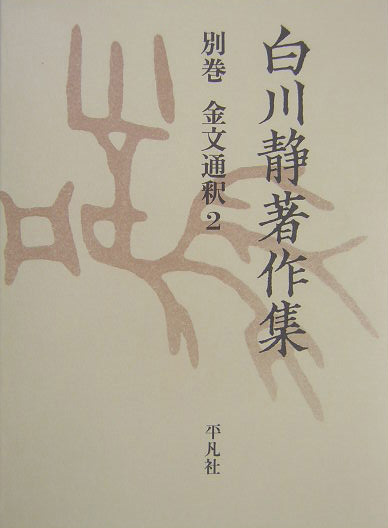 白川静著作集
別巻 金文通釈2
平凡社